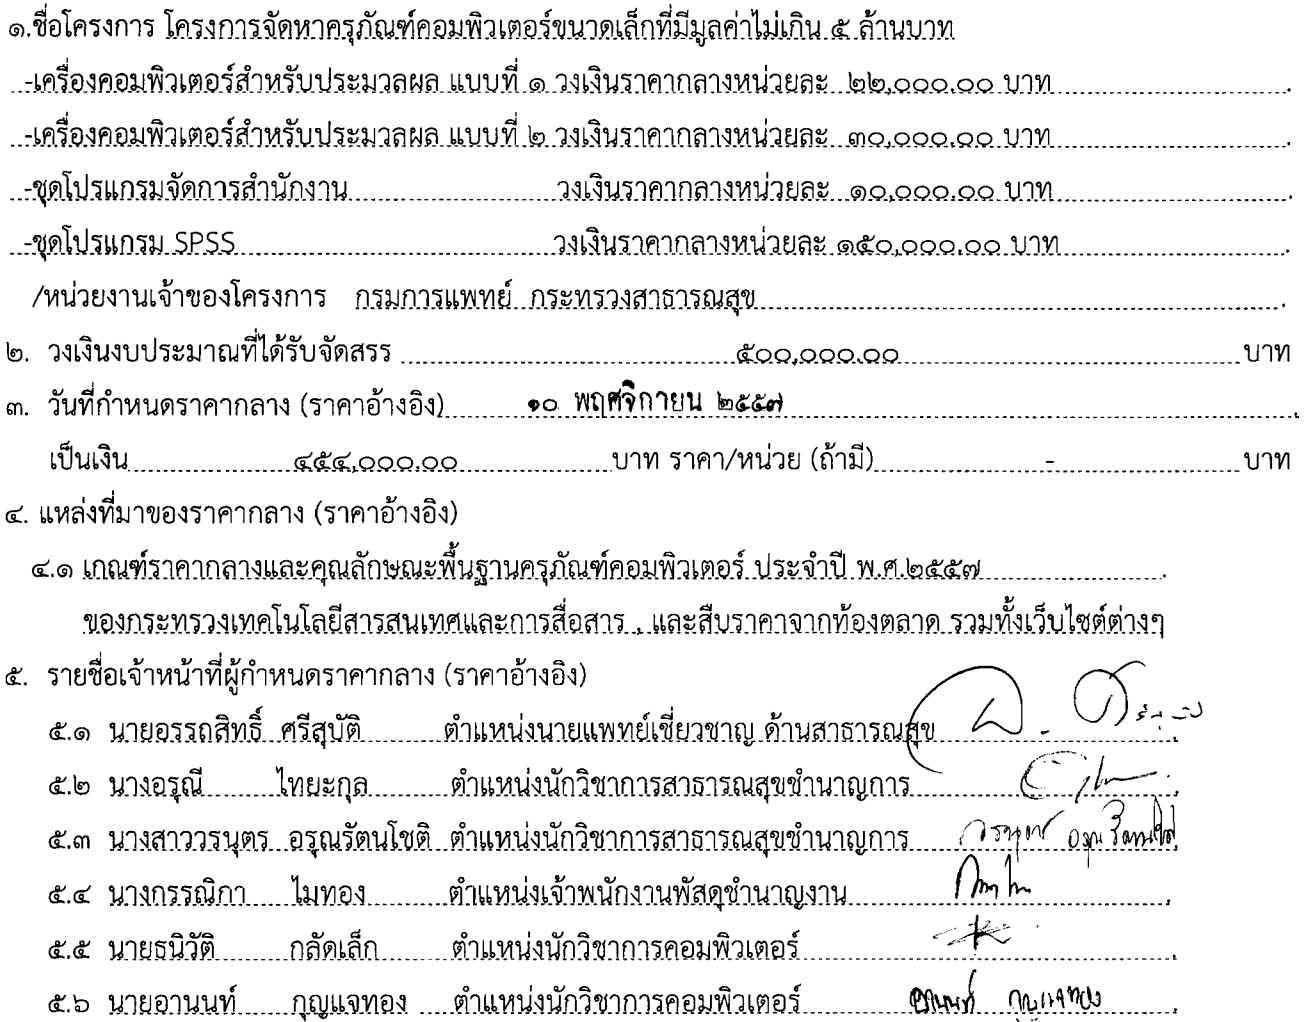 ๑.ชื่อโครงการ โครงการจัดหาครุภัณฑ์คอมพิวเตอร์ขนาดเล็กที่มีมูลค่าไม่เกิน ๕ ล้านบาท
-เครื่องคอมพิวเตอร์สำหรับประมวลผล แบบที่ ๑ วงเงินราคากลางหน่วยละ ๒๒,๐๐๐.๐๐ บาท
-เครื่องคอมพิวเตอร์สำหรับประมวลผล แบบที่ ๒ วงเงินราคากลางหน่วยละ ๓๐,๐๐๐.๐๐ บาท
-ชุดโปรแกรมจัดการสำนักงาน วงเงินราคากลางหน่วยละ ๑๐,๐๐๐.๐๐ บาท
-ชุดโปรแกรม SPSS วงเงินราคากลางหน่วยละ ๑๕๐,๐๐๐.๐๐ บาท
/หน่วยงานเจ้าของโครงการ กรมการแพทย์ กระทรวงสาธารณสุข
๒. วงเงินงบประมาณที่ได้รับจัดสรร ๕๐๐,๐๐๐.๐๐ บาท
๓. วันที่กำหนดราคากลาง (ราคาอ้างอิง) ๑๐ พฤศจิกายน ๒๕๕๗
เป็นเงิน ๔๕๔,๐๐๐.๐๐ บาท ราคา/หน่วย (ถ้ามี) - บาท
๔. แหล่งที่มาของราคากลาง (ราคาอ้างอิง)
๔.๑ เกณฑ์ราคากลางและคุณลักษณะพื้นฐานครุภัณฑ์คอมพิวเตอร์ ประจำปี พ.ศ.๒๕๕๗
ของกระทรวงเทคโนโลยีสารสนเทศและการสื่อสาร , และสืบราคาจากท้องตลาด รวมทั้งเว็บไซต์ต่างๆ
๕. รายชื่อเจ้าหน้าที่ผู้กำหนดราคากลาง (ราคาอ้างอิง)
๕.๑ นายอรรถสิทธิ์ ศรีสุบัติ ตำแหน่งนายแพทย์เชี่ยวชาญ ด้านสาธารณสุข
๕.๒ นางอรุณี ไทยะกุล ตำแหน่งนักวิชาการสาธารณสุขชำนาญการ
๕.๓ นางสาววรนุตร อรุณรัตนโชติ ตำแหน่งนักวิชาการสาธารณสุขชำนาญการ
๕.๔ นางกรรณิกา ไมทอง ตำแหน่งเจ้าพนักงานพัสดุชำนาญงาน
๕.๕ นายธนิวัติ กลัดเล็ก ตำแหน่งนักวิชาการคอมพิวเตอร์
๕.๖ นายอานนท์ กุญแจทอง ตำแหน่งนักวิชาการคอมพิวเตอร์ อานนท์ กุญแจทอง